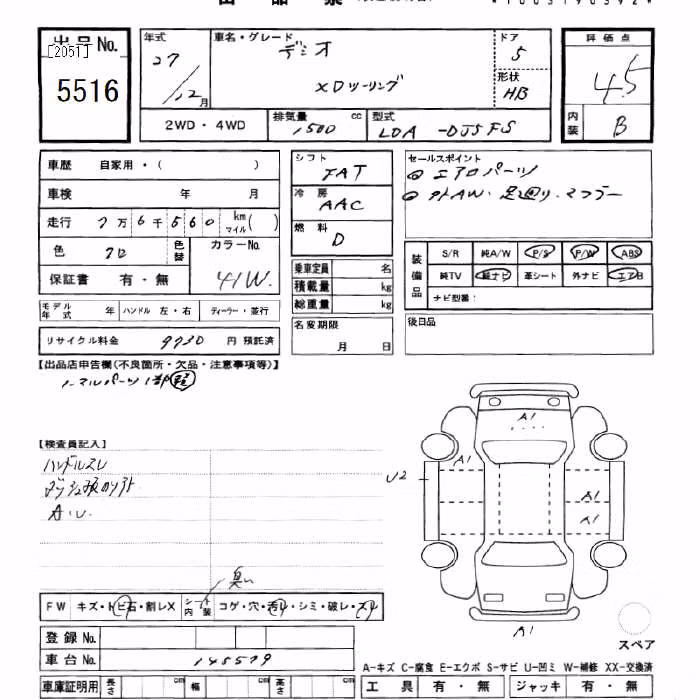 出品票
出品No.
[2051]
5516
年式
27
/12月
車名・グレード
デミオ
XDツーリング
ドア
5
形状
HB
評価点
4.5
内装
B
2WD・4WD
排気量
1500
cc
型式
LDA-DJ5FS
車歴 自家用・( )
車検 年 月
走行 7万6千560 km マイル( )
色 クロ
色替
カラーNo.
41W.
保証書 有・無
モデル年式 年 ハンドル 左・右 ディーラー・並行
リサイクル料金 9730 円 預託済
シフト
FAT
冷房
AAC
燃料
D
乗車定員 名
積載量 kg
総重量 kg
名変期限
月 日
セールスポイント
◎エアロパーツ
◎外AW.足廻り.マフラー
装備品
S/R 純A/W P/S P/W ABS
純TV 純ナビ 革シート 外ナビ エアB
ナビ型番:
後日品
【出品店申告欄(不良箇所・欠品・注意事項等)】
ノーマルパーツ1部
【検査員記入】
ハンドルスレ
A.U.
U2
A1
A1
A1
A1
A1
臭い
FW キズ・トビ石・割レX シート内装 コゲ・穴・汚レ・シミ・破レ・スレ
登録No.
車台No.
145579
車庫証明用 長さ cm 幅 cm 高さ cm
スペア
A-キズ C-腐食 E-エクボ S-サビ U-凹ミ W-補修 XX-交換済
工具 有・無 ジャッキ 有・無